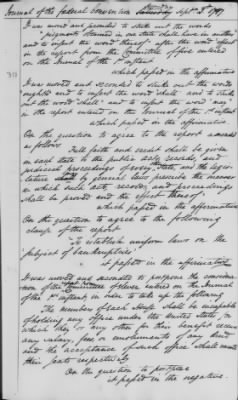 Journal of the federal Convention Monday Sept. 3d 1787
It was moved and seconded to strike out the words
"judgments obtained in one state shall have in another"
and to insert the word "thereof" after the word effect
in the report from the Committee of five entered
on the Journal of the 1st instant
which passed in the affirmative
It was moved and seconded to strike out the word
ought and to insert the word shall and to strike
out the word "shall" and to insert the word "may" in
the report entered on the Journal of the 1st instant
which passed in the affirmative
On the question to agree to the report amended
as follows
Full faith and credit shall be given
in each state to the public acts, records, and
judicial proceedings of every other state, and the legis-
lature may by general laws prescribe the manner
in which such acts, records, and proceedings
shall be proved and the effect thereof
which passed in the affirmative
On the question to agree to the following
clause of the report
"To establish uniform laws on the
subject of bankruptcies"
it passed in the affirmative
It was moved and seconded to postpone the considera-
tion of the Committee of eleven entered on the Journal
of the 1st instant, in order to take up the following
The members of each House shall be incapable
of holding any office under the United States, for
which they or any other for their benefit receive
any salary, fees or emoluments of any kind
and the acceptance of such office shall vacate
their seats respectively
On the question to postpone
it passed in the negative.